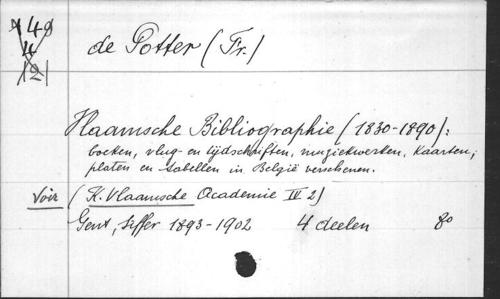 148
4
121
de Potter (Fr.)
Vlaamsche Bibliographie (1830-1890):
boeken, vlug- en tijdschriften, muziekwerken, kaarten,
platen en tabellen in België verschenen.
Voir (K. Vlaamsche Academie IV 2)
Gent, Siffer 1893-1902 4 deelen 8o